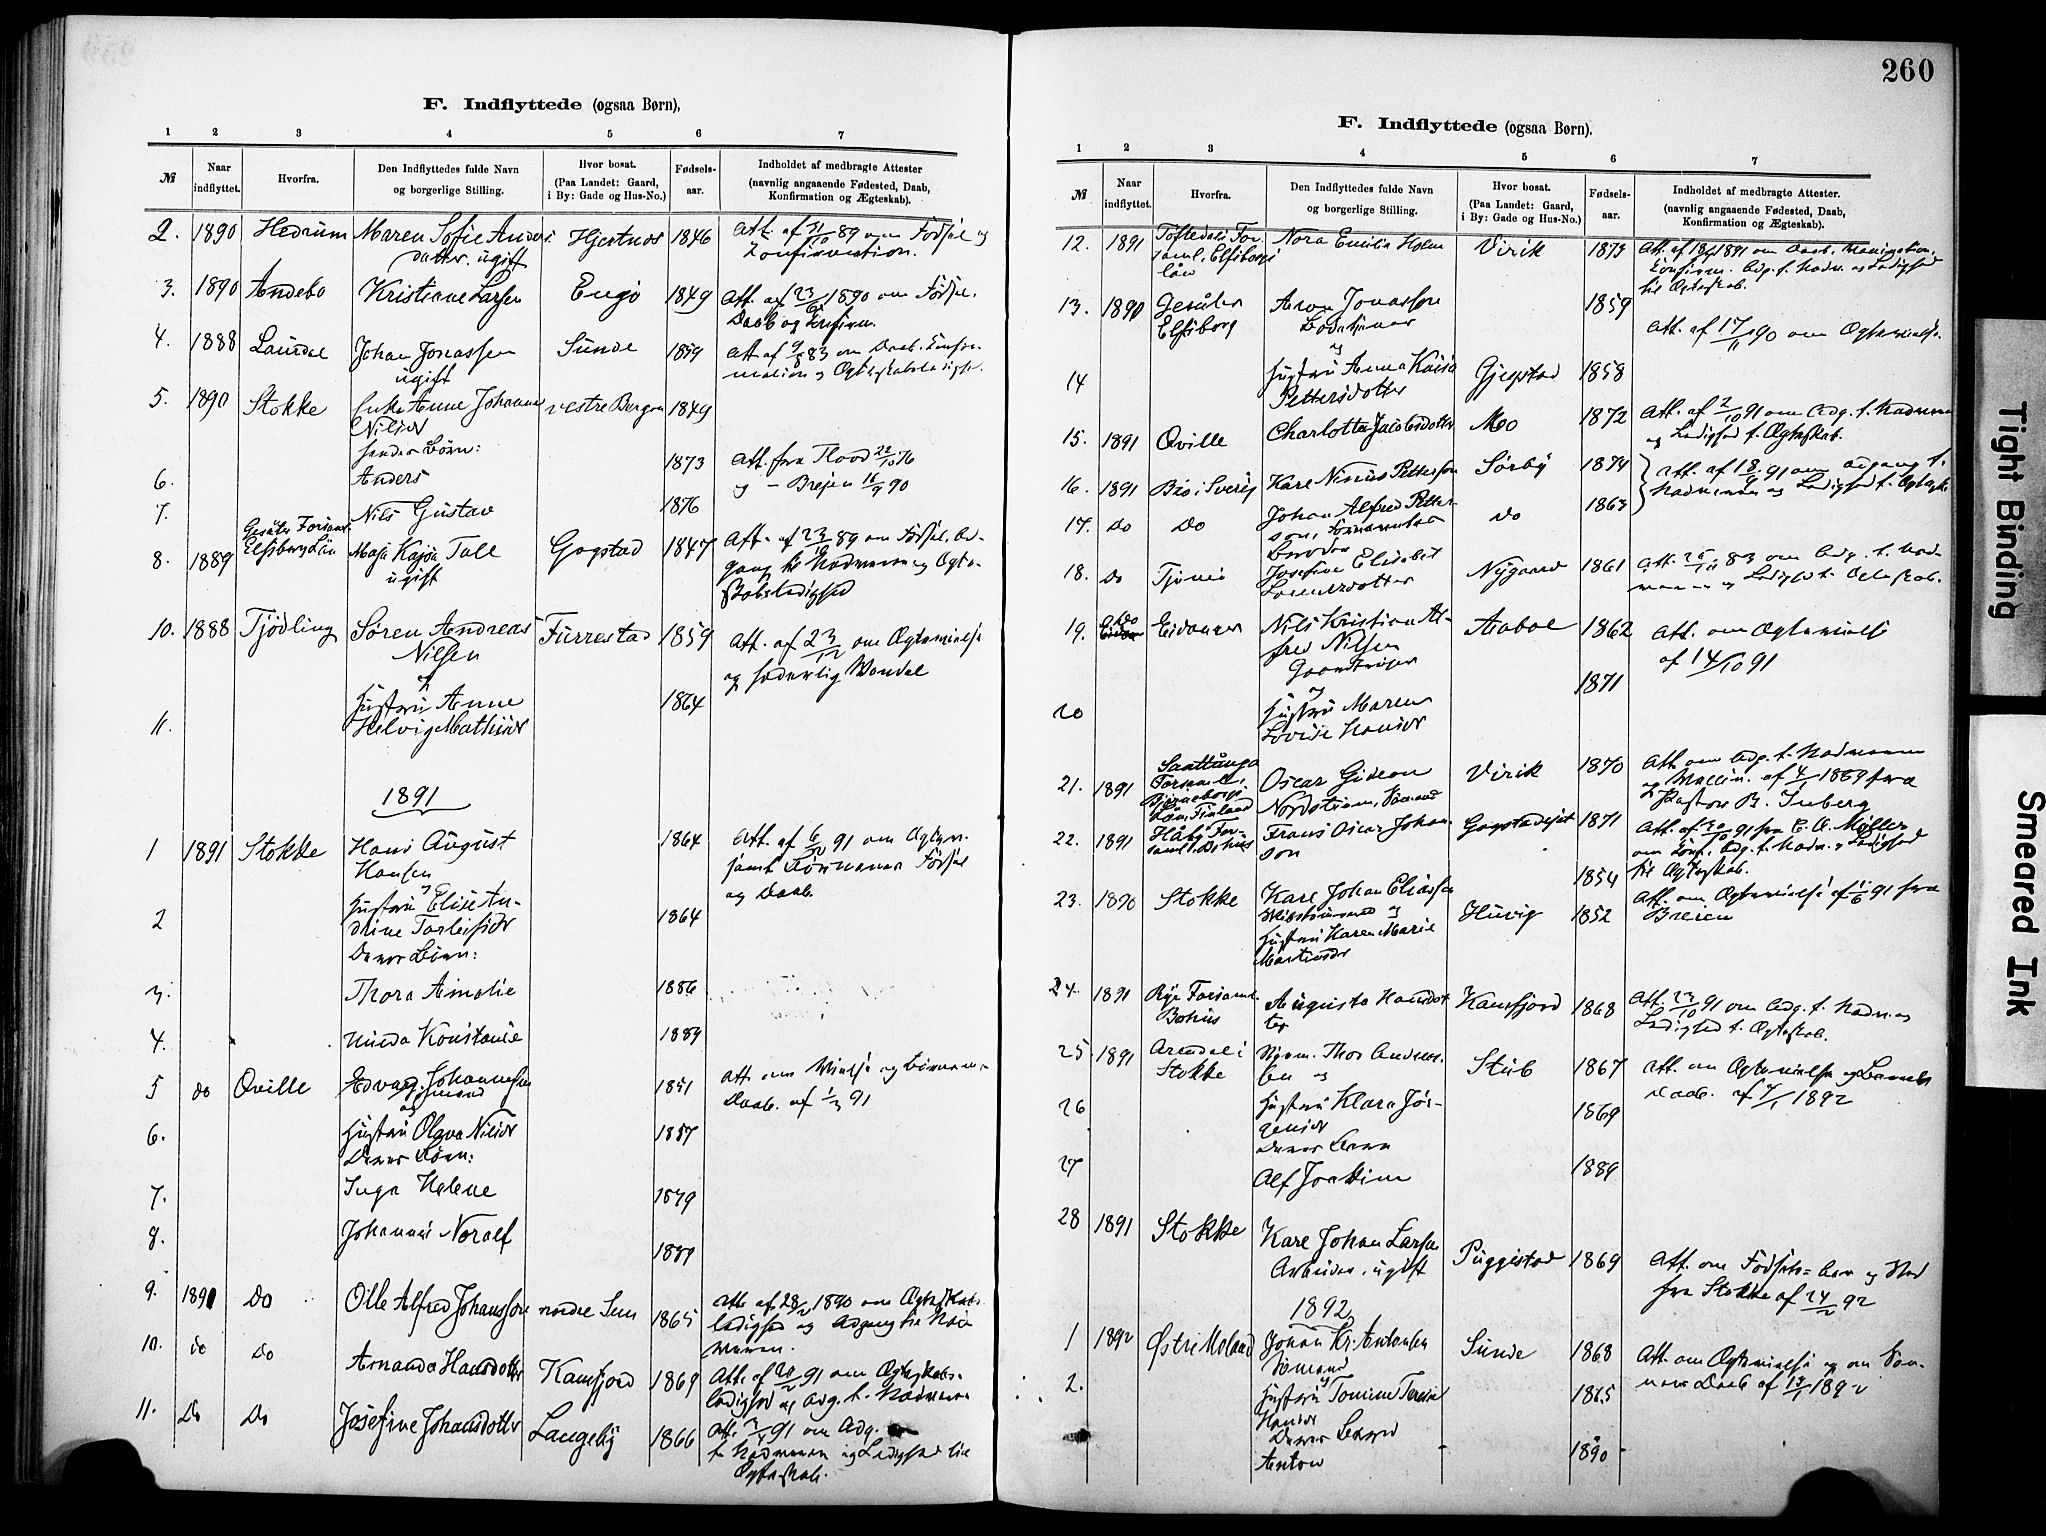 260
F. Indflyttede (ogsaa Børn),
1 2 3 4 5 6 7
№ Naar indflyttet. Hvorfra. Den Indflyttedes fulde Navn og borgerlige Stilling. Hvor bosat. (Paa Landet: Gaard, i By: Gade og Hus-No.) Fødsels-aar. Indholdet af medbragte Attester (navnlig angaaende Fødested, Daab, Konfirmation og Ægteskab).
2. 1890 Hedrum Maren Sofie Anders- Hjertnes 1846 Att. af 31/10 89 om Fødsel og
datter. ugift Konfirmation.
3. 1890 Andebo Kristiane Larsen Engø 1849 Att. af 23/6 1890 om Fødsel,
Daab og Konfirm.
4. 1888 Laurdal Johan Jonassen Sunde 1859 Att af 9/8 83 om Daab. Konfir-
ugift mation og Ægteskabsledighe.
5. 1890 Stokke Enke Anne Johanne vestre Bergan 1849
Nilsdr
hendes Børn:
6. Anders 1873 Att. fra Flood 22/10 76
7. Nils Gustav 1876 og - Brejen 16/9 90
8. 1889 Gesäter Forsaml. Elfsborg Län Maja Kajsa Tall Gogstad 1847 Att. af 23/10 89 om Fødsel. Ad-
ugift gang til Nadveren og Ægte-
skabsledighed
10. 1888 Tjødling Søren Andreas Furrestad 1859 Att. af 23/12 om Ægtevielse
Nilsen og hæderlig Vandel
og
11. Hustru Anne 1864
Helvig Mathisdr
1891
1 1891 Stokke Hans August 1864 Att. af 6/10 91 om Ægtev.
Hansen samt Børnenes Fødsel
og og Daab.
2 Hustru Elise An- 1864
drine Torleifsdr
Deres Børn:
3. Thora Amalie 1886
4. Minda Konstanse 1889
5 do Qville Edvard Johannesen 1851 Att. om Vielse og Børnenes
Sømand Daab. af 1/3 91
og
6. Hustru Olava Nilsdr 1857
Deres Børn:
7. Inga Helene 1879
8. Johannes Noralf 1889
9. 1891 Do Olle Alfred Johanssøn nordre Sun 1865 Att. af 28/2 1890 om Ægteskabs-
ledighed og Adgang til Nad-
veren.
10. do Do Amanda Hansdotter Kamfjord 1869 Att. af 20/2 91 om Ægteskabs-
ledighed og Adg. t. Nadveren
11. Do Do Josefine Johansdotter Langeby 1866 Att. 3/4 91 om Adg.
t. Nadveren og Ledighed til
Ægteskab.
F. Indflyttede (ogsaa Børn).
1 2 3 4 5 6 7
№ Naar indflyttet. Hvorfra. Den Indflyttedes fulde Navn og borgerlige Stilling. Hvor bosat. (Paa Landet: Gaard, i By: Gade og Hus-No.) Fødsels-aar. Indholdet af medbragte Attester. (navnlig angaaende Fødested, Daab, Konfirmation og Ægteskab).
12. 1891 Töftedals For- Nora Emilia Holm Virik 1873 Att. af 1891 om Daab.
saml. Elfsborgs Konfirm. Adg. t. Nadv. og Ledighed
län til Ægteskab.
13. 1890 Gesäter Aron Jonassøn 1859
Elfsborg Att. af 17/11 90 om Ægtevielse.
og
14 Hustru Anna Kaisa Gjegstad 1858
Pettersdotter
15. 1891 Qville Charlotta Jacobsdotter Mo 1872 Att. af 2/10 91 om Adg. t. Nadveren
og Ledighed t. Ægteskab.
16. 1891 Bro i Sverig Karl Petterson Sørby 1874 Att. af 18/9 91 om Adgang t.
Nadveren og Ledighed t. Ægtesk.
17. Do Do Johan Alfred Petter- Do 1863
son,
18. Do Tjømø Josefine Elisabet Nygaard 1861 Att. 83 om Adg. t. Nad-
Larsdotter og Ledighed t. Ægteskab.
19. Do Eidanger Nils Kristian Al- Aabol 1862 Att. om Ægtevielse
fred Nilsen af 14/10 91
Gaardbruger
og
20 Hustru Maren 1871
Lovise Hansdr
21. 1891 Oscar Gideon Virik 1870 Att om Adg. t. Nadveren
Forsaml., Björneborgs Län, Finland Nordström, Sømand af 4/ 1889 fra
Pastor B. Inberg
22. 1891 Håby For- Frans Oscar Johan- Gogstadejet 1871 Att. af 30/10 91 fra C. A. Møller
saml. Bohus son om Konf. Adg. t. Nadv. og Ledighed
til Ægteskab.
23. 1890 Stokke Karl Johan Eliassen Huvig 1854 Att. om Ægtevielse af 11/6 91 fra
og 1852 Breien
Hustru Karen Marie
Martinsdr
24. 1891 Forsaml. Augusta Hansdot- Kamfjord 1868 Att. 23/10 91 om Adg. t. Nadv. og
Bohus ter Ledighed t. Ægteskab.
25 1891 Arendal i Thor Andrea- Stub 1867 Att. om Ægtevielse og Barnets
Stokke sen og Daab. af 7/1 1892
26 Hustru Klara Jør- 1869
gensdr
Deres Barn
27 Alf Joakim 1889
28 1891 Stokke Karl Johan Larsen Puggestad 1869 Att. om Fødsels-
Arbeider. ugift fra Stokke af 24/2 92
1892
1 1892 Østre Moland Johan Kr. Antonsen Sunde 1868 Att. om Ægtevielse og om Søn-
Sømand nens Daab af 13/1 1892
og
2. Hustru Tomine Teresia 1865
Hansdr
Deres Barn
Anton 1890
Tight Binding
Smeared Ink